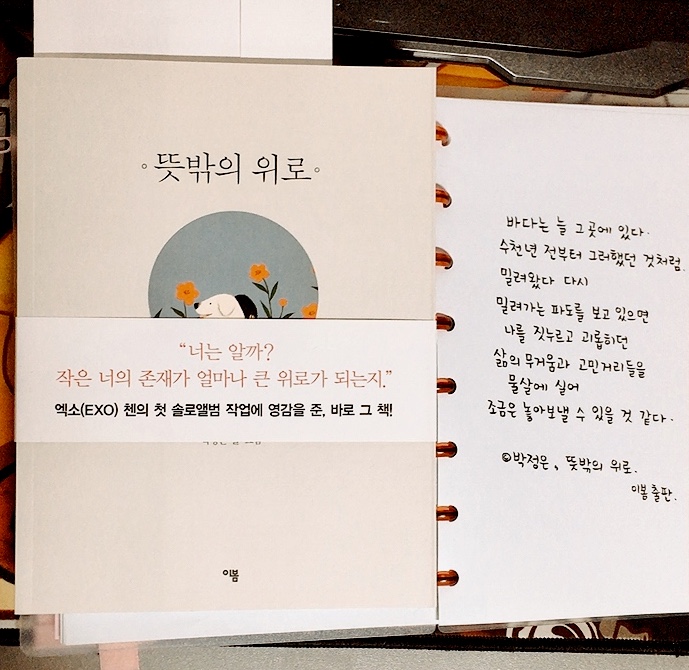 뜻밖의 위로
“너는 알까?
작은 너의 존재가 얼마나 큰 위로가 되는지.”
엑소(EXO) 첸의 첫 솔로앨범 작업에 영감을 준, 바로 그 책!
이봄
바다는 늘 그곳에 있다.
수천년 전부터 그러했던 것처럼.
밀려왔다 다시
밀려가는 파도를 보고 있으면
나를 짓누르고 괴롭히던
삶의 무거움과 고민거리들을
물살에 실어
조금은 놓아보낼 수 있을 것 같다.
©박정은, 뜻밖의 위로.
이봄출판.